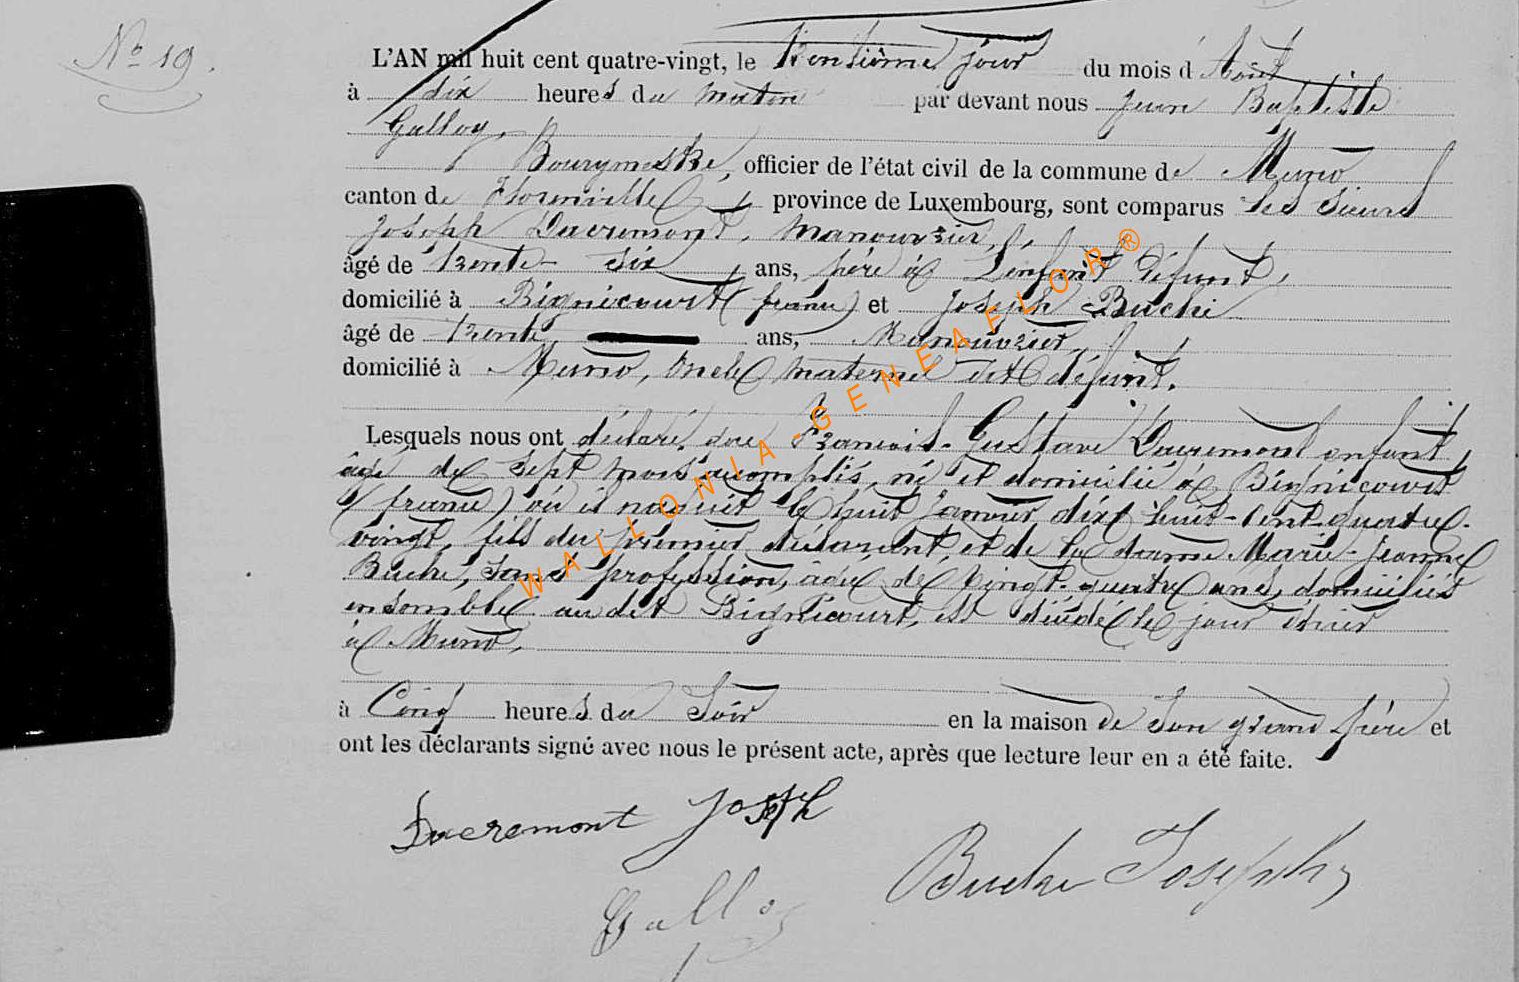 N° 19.
L'AN mil huit cent quatre-vingt, le trentième jour du mois d'Août
à dix heures du matin par devant nous Jean Baptiste
Galloy,
Bourgmestre, officier de l'état civil de la commune de Muno
canton de Florenville, province de Luxembourg, sont comparus les sieurs
Joseph Ducremont, manouvrier,
âgé de trente-six ans, père à l'enfant défunt,
domicilié à Bignicourt (france) et Joseph Buché
âgé de trente ans, Manouvrier,
domicilié à Muno, oncle maternel dit défunt.
Lesquels nous ont déclaré que François-Gustave Ducremont enfant
âgé de sept mois accomplis, né et domicilié à Bignicourt
(france) où il naquit le huit Janvier dix huit-cent-quatre-
vingt, fils du premier déclarant et de la dame Marie-Jeanne
Buché, sans profession, âgée de vingt-quatre ans, domiciliés
ensemble au dit Bignicourt, est décédé le jour d'hier
à Muno,
à Cinq heures du Soir en la maison de son grand père et
ont les déclarants signé avec nous le présent acte, après que lecture leur en a été faite.
Ducremont Joseph
Buché Joseph
Galloy
WALLONIA-GENEAFLOR®